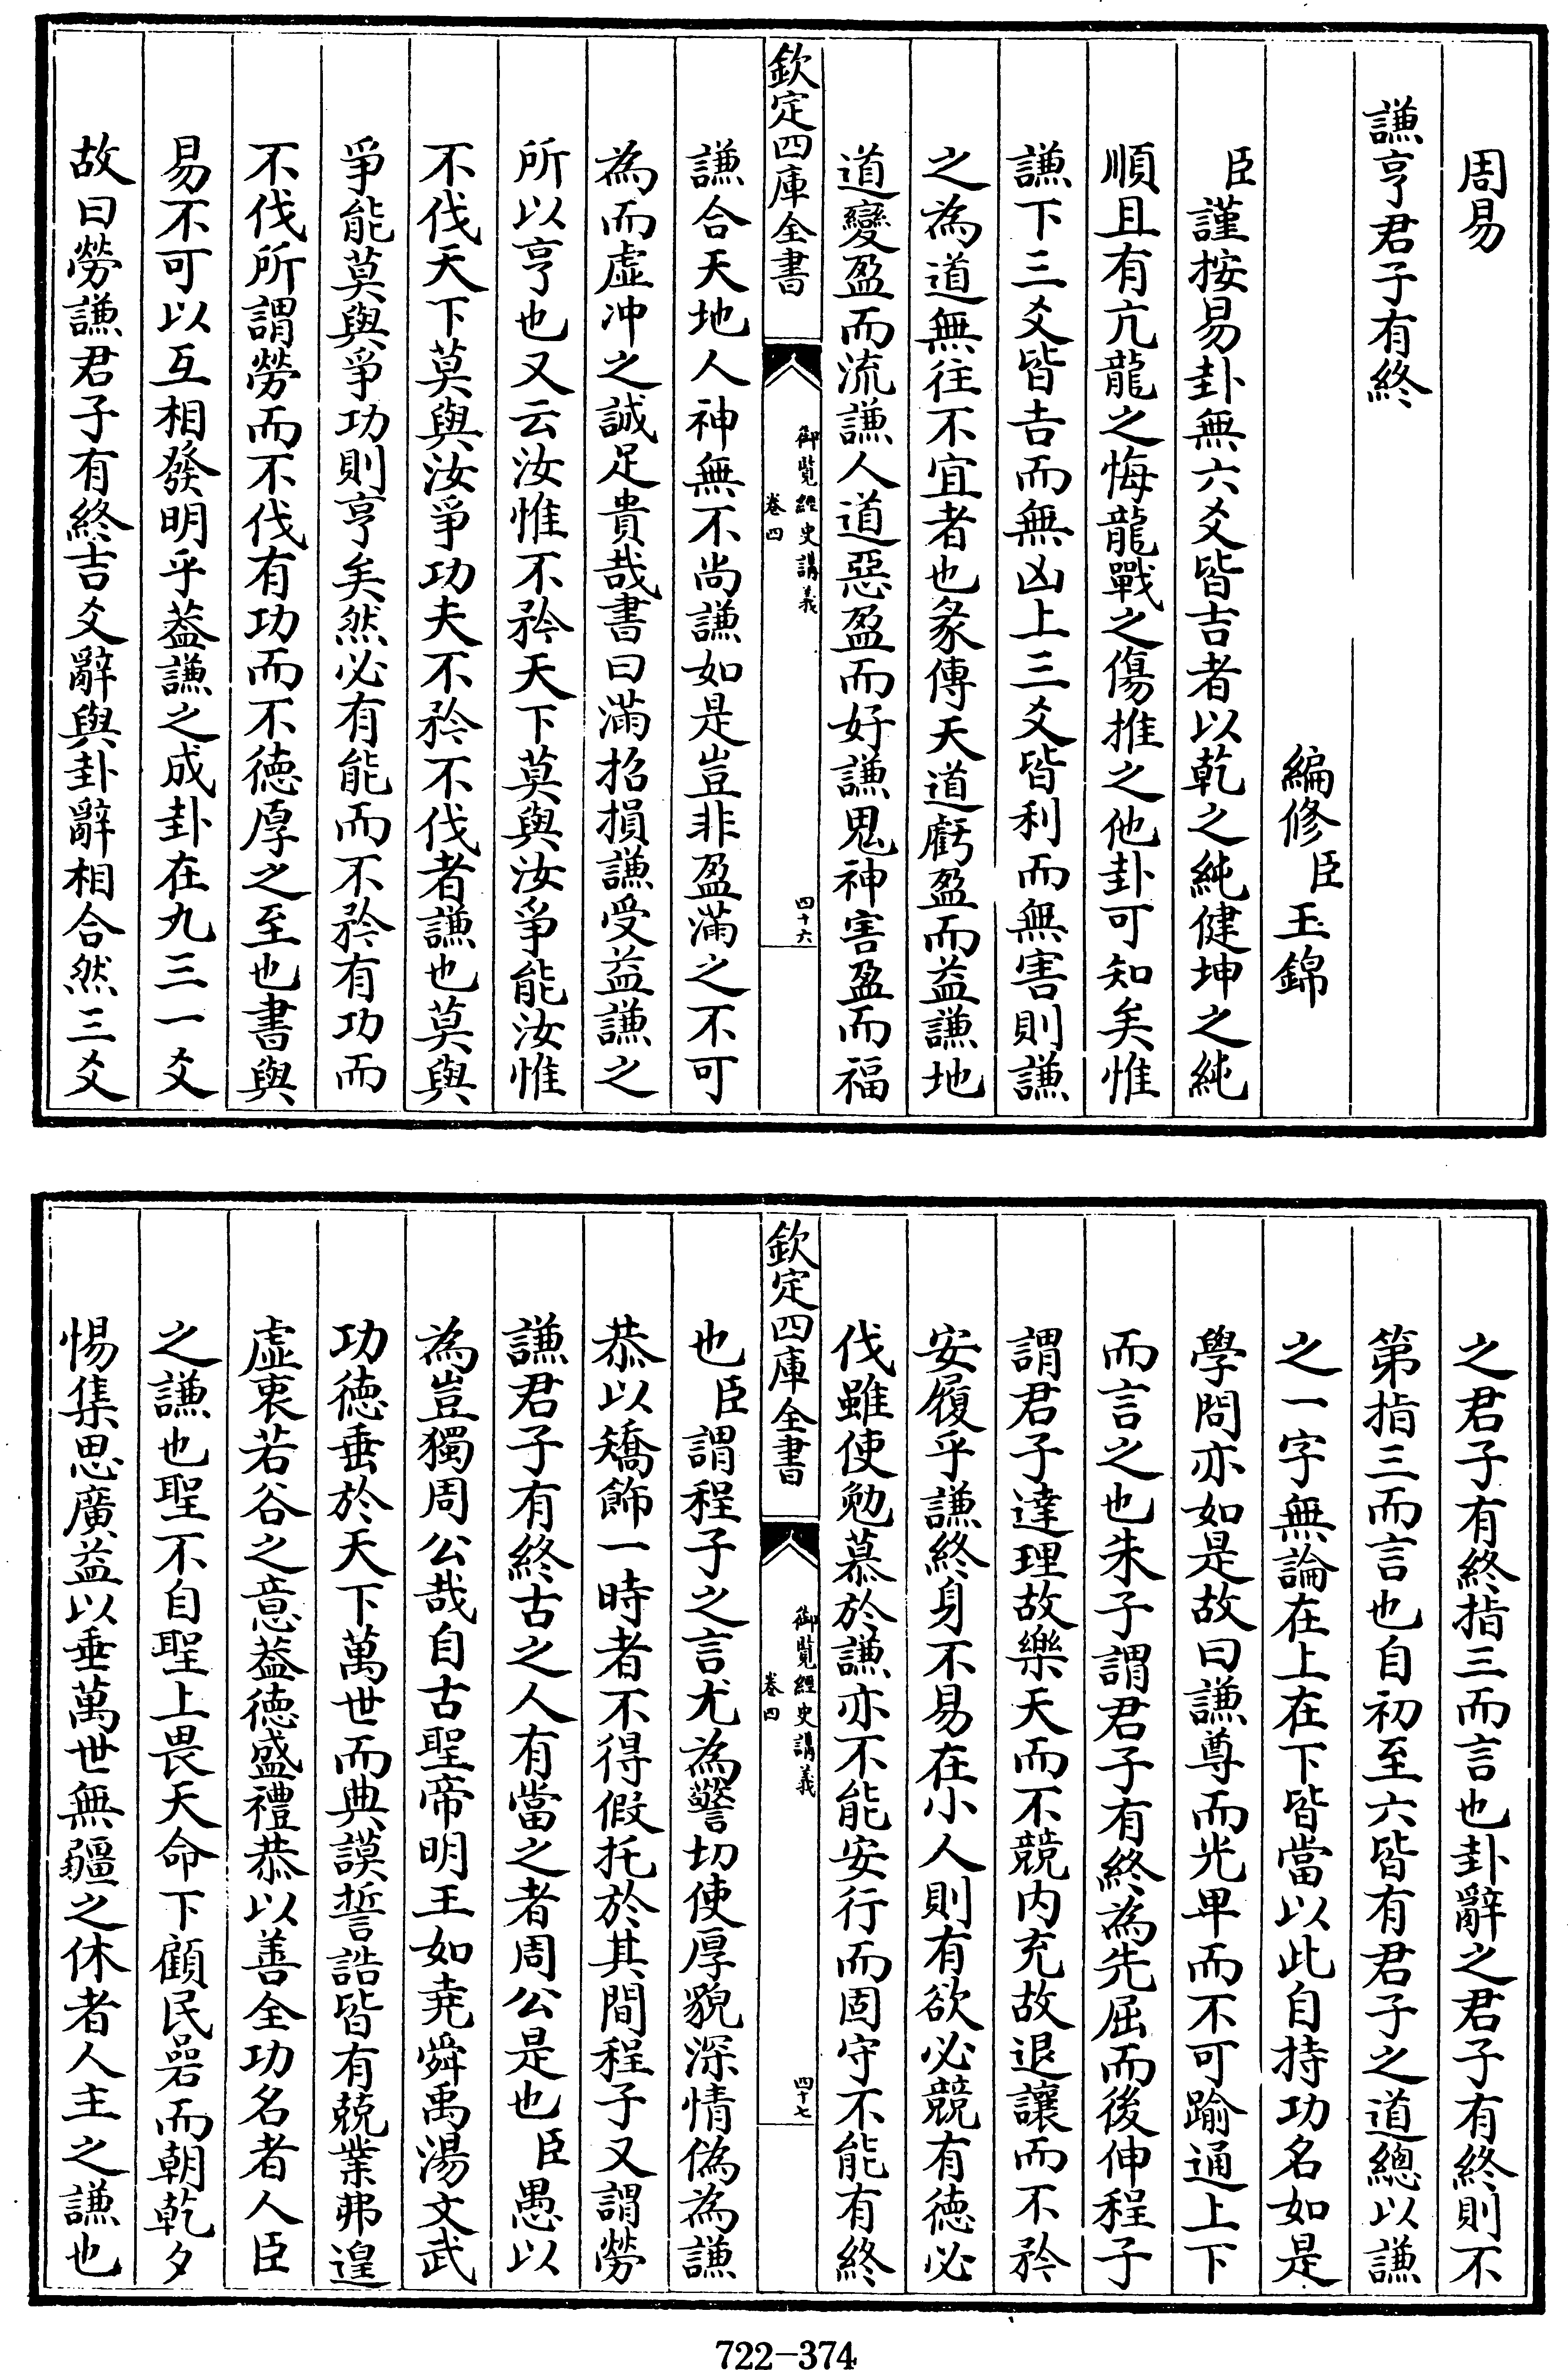 周易
謙亨君子有終
編修臣玉錦
臣謹按易卦無六爻皆吉者以乾之純健坤之純
順且有亢龍之悔龍戰之傷推之他卦可知矣惟
謙下三爻皆吉而無凶上三爻皆利而無害則謙
之為道無往不宜者也彖傳天道虧盈而益謙地
道變盈而流謙人道惡盈而好謙鬼神害盈而福
欽定四庫全書
御覽經史講義
卷四
四十六
謙合天地人神無不尚謙如是豈非盈滿之不可
為而虛冲之誠足貴哉書曰滿招損謙受益謙之
所以亨也又云汝惟不矜天下莫與汝爭能汝惟
不伐天下莫與汝爭功夫不矜不伐者謙也莫與
爭能莫與爭功則亨矣然必有能而不矜有功而
不伐所謂勞而不伐有功而不徳厚之至也書與
易不可以互相發明乎葢謙之成卦在九三一爻
故曰勞謙君子有終吉爻辭與卦辭相合然三爻
之君子有終指三而言也卦辭之君子有終則不
第指三而言也自初至六皆有君子之道總以謙
之一字無論在上在下皆當以此自持功名如是
學問亦如是故曰謙尊而光卑而不可踰通上下
而言之也朱子謂君子有終為先屈而後伸程子
謂君子達理故樂天而不競内充故退讓而不矜
安履乎謙終身不易在小人則有欲必競有德必
伐雖使勉慕於謙亦不能安行而固守不能有終
欽定四庫全書
御覽經史講義
卷四
四十七
也臣謂程子之言尤為警切使厚貌深情偽為謙
恭以矯飾一時者不得假托於其間程子又謂勞
謙君子有終古之人有當之者周公是也臣愚以
為豈獨周公哉自古聖帝明王如堯舜禹湯文武
功徳垂於天下萬世而典謨誓誥皆有兢業弗遑
虛衷若谷之意葢徳盛禮恭以善全功名者人臣
之謙也聖不自聖上畏天命下顧民碞而朝乾夕
惕集思廣益以垂萬世無疆之休者人主之謙也
722-374